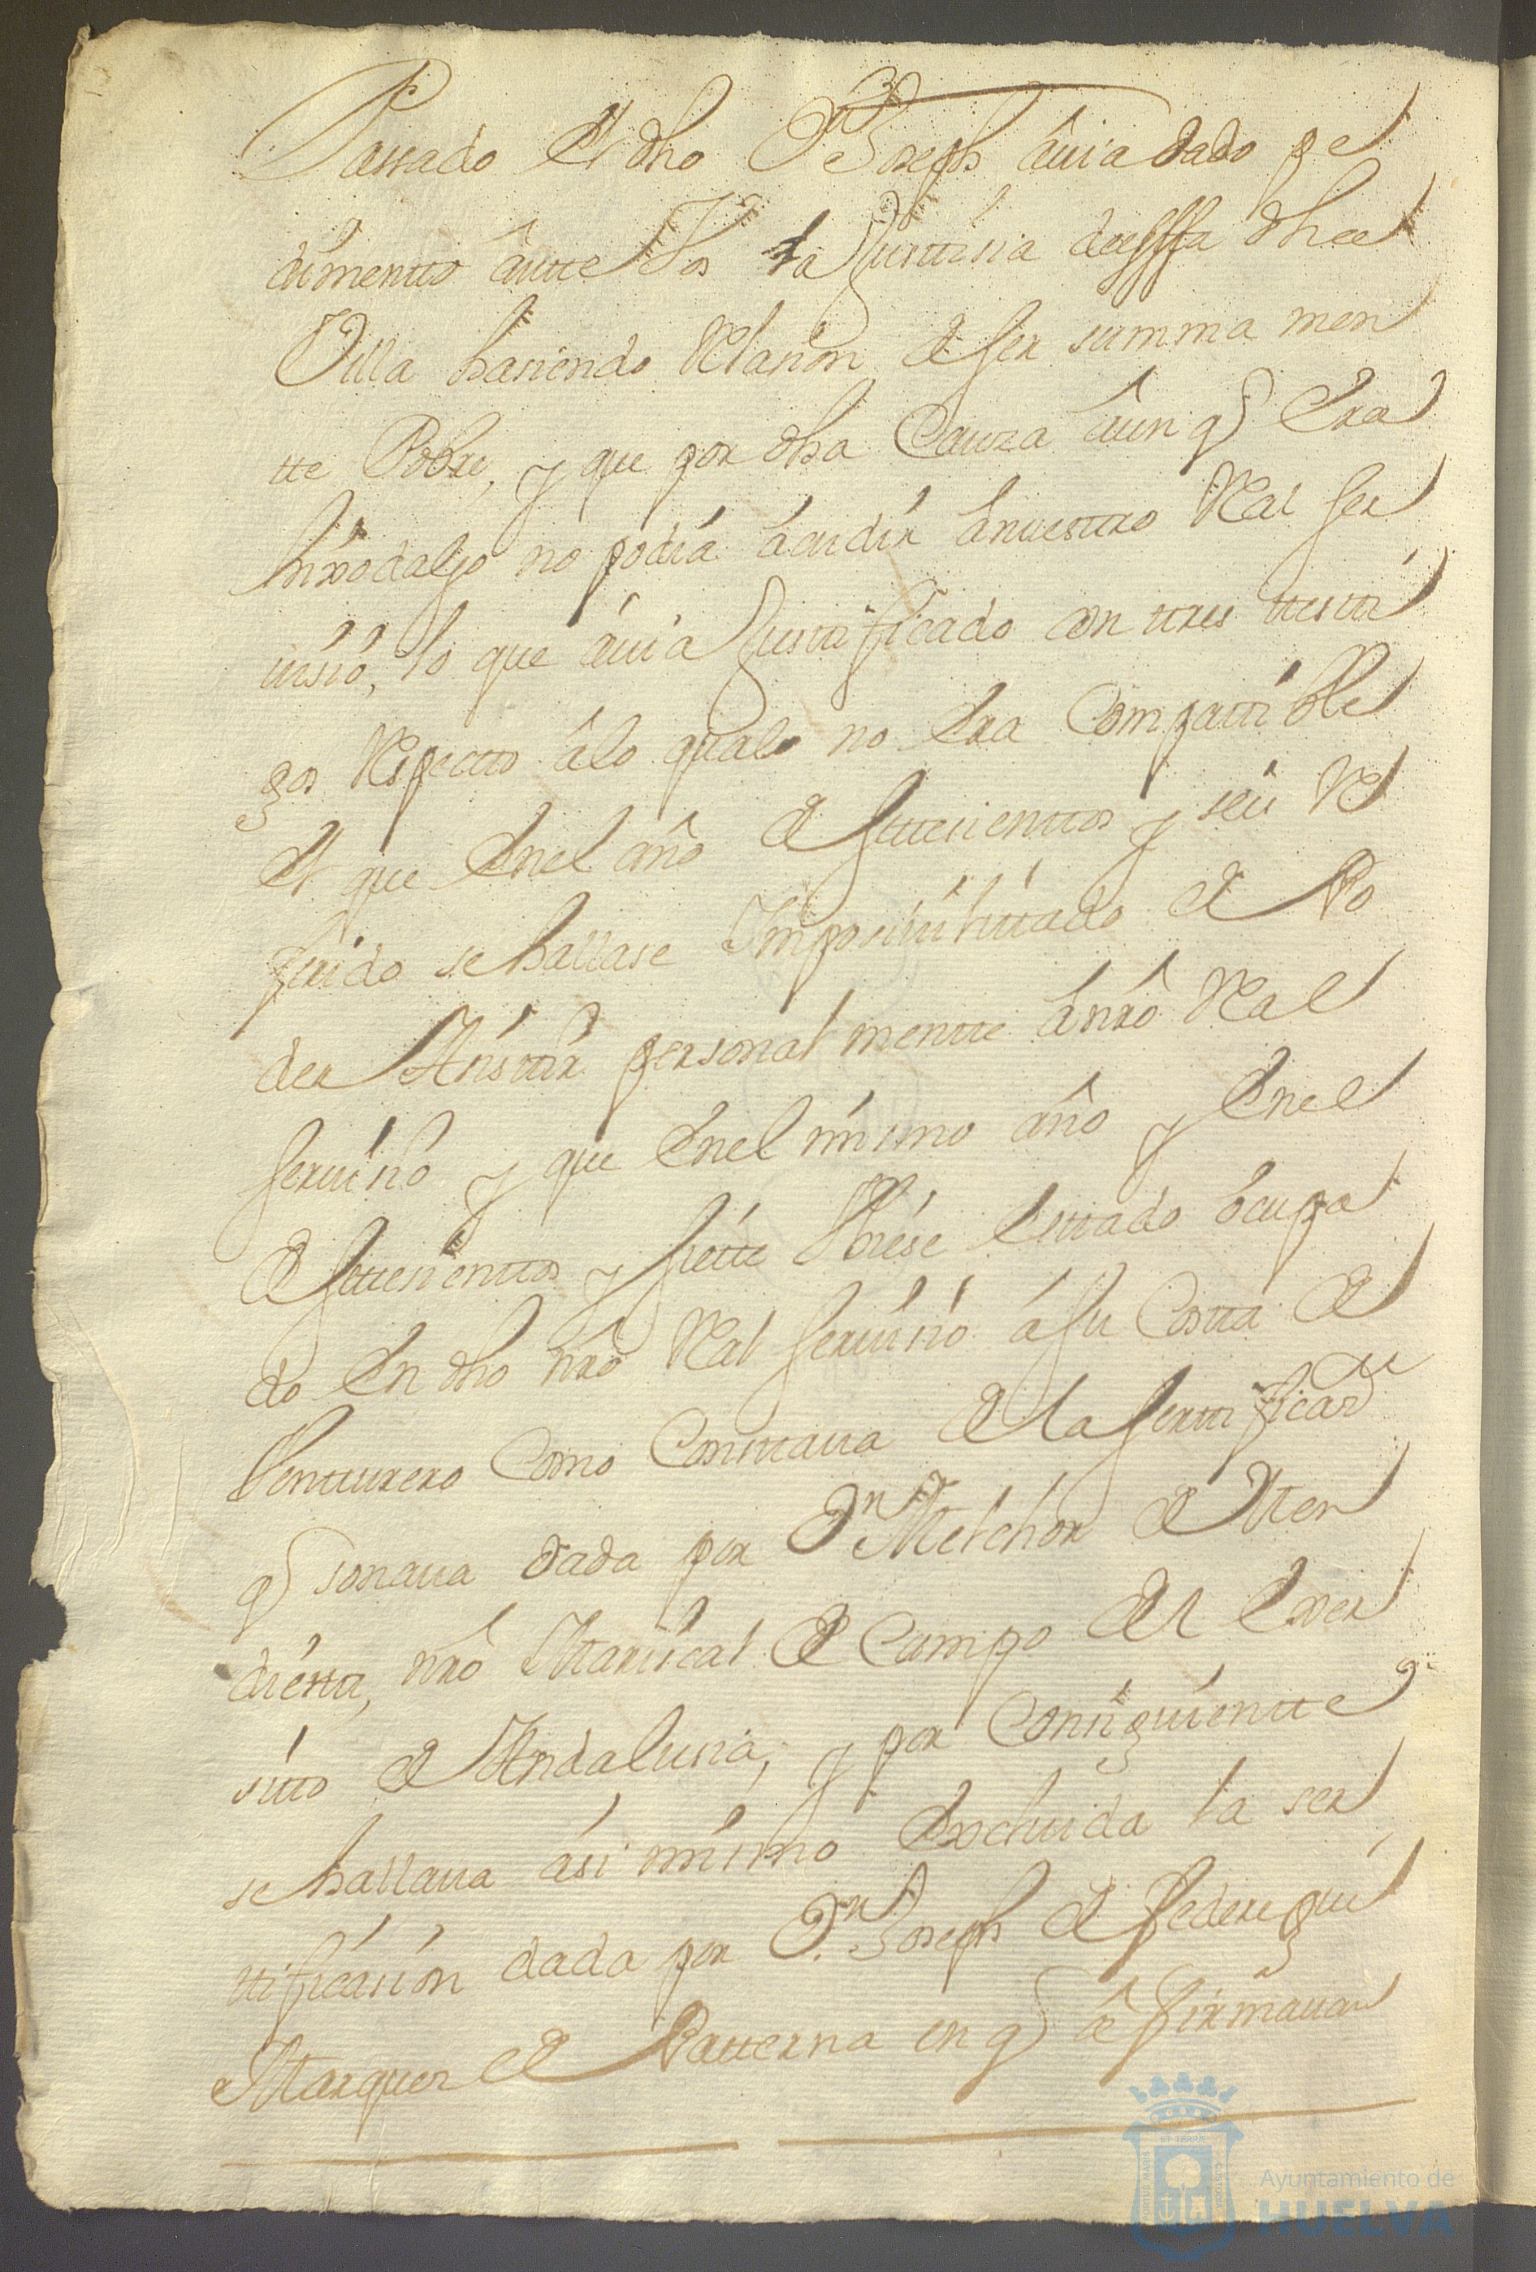 Passado El dho Dn Joseph âuia dado pe
dimentto ântte Vos la Justtisia dessa dha
Villa hasiendo Relasion de ser summa men
tte Pobre, y que por dha Cauza âun q Era
hixodalgo no podia âcudir ânuesttro Real ser
uisio, lo que âuia Justtificado con ttres testti
gos Respectto âlo quale no Era Compattible
El que Enel año de Settesienttos y seis Re
ferido se hallase Imposiuilittado de Po
der Asisttir personal mentte ânro Real
seruisio y que Enel mismo año y Enel
de Settesienttos y siette Vbiese Esttado ôcupa
do En dho nro Real seruisio â su Costta de
Venturero Como Consttaua de la Serttificaz.n
q sonaua dada por Dn Melchor de Men
dietta, nro Mariscal de Campo del Exer
sitto de Andalusia, y por Consiguientte
se hallaua âsi mismo Excluida la ser
ttificasion dada por Dn Joseph de Federegui
Marques de Patterna en q âfirmaua
Ayuntamiento de
HUELVA